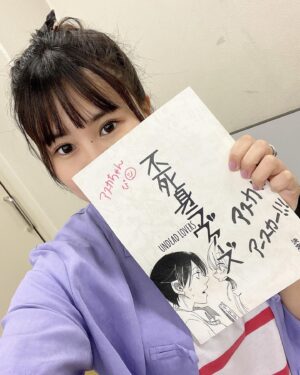 アスカちゃん
江
不死身ラヴァーズ
UNDEAD LOVERS
アスカ
アースカー!!!